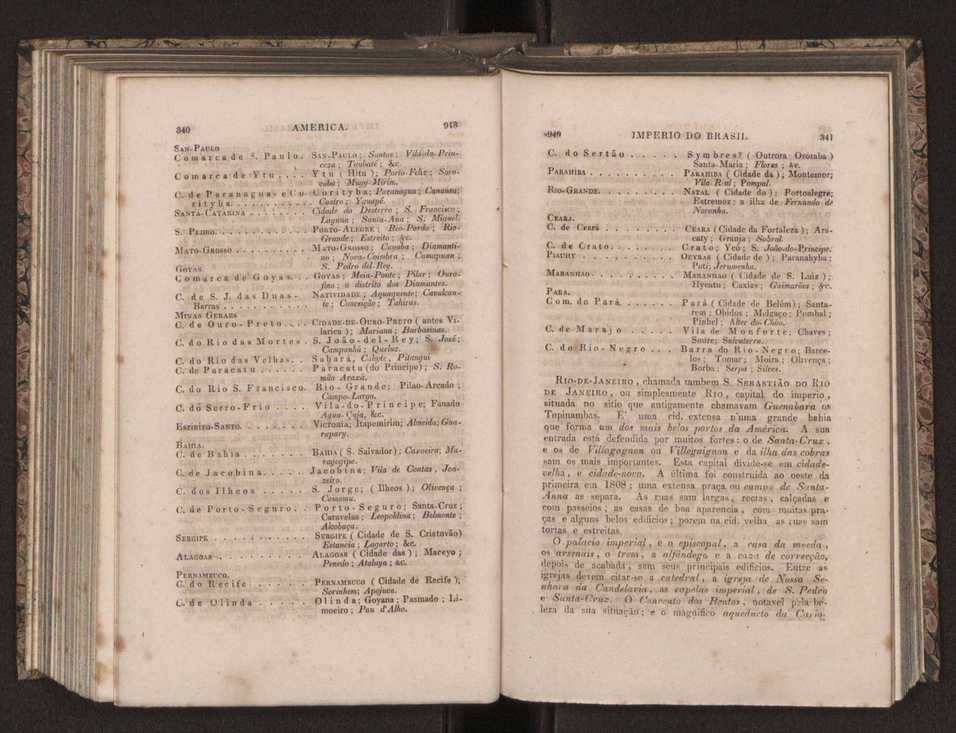 340 AMERICA. 948
SAN-PAULO
Comarca de S. Paulo. SAN-PAULO; Santos; Villa-da-Prin-
ceza; Taubaté; &c.
Comarca de Ytu . . . Ytu (Hitu); Porto-Feliz; Soro-
caba; Mugy-Mirin.
C. de Paranagua e Cu- Corityba; Paranagua; Cananéa;
rityba . . . . . . . . . . . Castro; Yguapé.
SANTA-CATARINA . . . . . . . . Cidade do Desterro; S. Francisco;
Laguna; Santa-Ana; S. Miguel.
S. PEDRO. . . . . . . . . . . . . PORTO-ALEGRE; Rio-Pardo; Rio-
Grande; Estreito; &c.
MATO-GROSSO . . . . . . . . . . MATO-GROSSO; Cuyaba; Diamanti-
no; Nova-Coimbra; Camapuan;
S. Pedro del-Rey.
GOYAS
Comarca de Goyas. . . GOYAS; Meia-Ponte; Pilar; Ouro-
fino; o distrito dos Diamantes.
C. de S. J. das Duas- NATIVIDADE; Aguaquente; Cavalcan-
Barras . . . . . . . . . . . te; Conceição; Tahiras.
MINAS GERAES
C. de Ouro-Preto . . . CIDADE-DE-OURO-PRETO (antes Vi-
larica); Mariana; Barbasinas.
C. do Rio das Mortes. S. João-del-Rey; S. José;
Campanhã; Queluz.
C. do Rio das Velhas. . Sabará, Cahyte, Pitangui
C. de Paracatu . . . . . Paracatu (do Principe); S. Ro-
mão Araxá.
C. do Rio S. Francisco. Rio-Grande; Pilao-Arcado;
Campo-Largo.
C. do Serro-Frio . . . . Vila-do-Principe; Fanado
Agua-Cuja, &c.
ESPIRITO-SANTO. . . . . . . . . VICTORIA; Itapemirim; Almeida; Gua-
rapary.
BAHIA.
C. de Bahia . . . . . . . BAHIA (S. Salvador); Caxoeira; Ma-
ragogipe.
C. de Jacobina . . . . . Jacobina; Vila de Contas, Joa-
zeiro.
C. dos Ilheos . . . . . . S. Jorge; (Ilheos); Olivença;
Camamu.
C. de Porto-Seguro. . Porto-Seguro; Santa-Cruz;
Caravelas; Leopoldina; Belmonte;
Alcobaça.
SERGIPE . . . . . . . . . . . . SERGIPE (Cidade de S. Cristovão)
Estancia; Lagarto; &c.
ALAGOAS . . . . . . . . . . . . ALAGOAS (Cidade das); Maceyo;
Penedo; Atalaya; &c.
PERNAMBUCO.
C. do Recife . . . . . . PERNAMBUCO (Cidade de Recife),
Serinhem; Apojuca.
C. de Olinda . . . . . . Olinda; Goyana; Pasmado; Li-
moeiro; Pau d'Alho.
949 IMPERIO DO BRASIL 341
C. do Sertão . . . . . Symbres? (Outrora Ororaba)
Santa-Maria; Flores; &c.
PARAHIBA . . . . . . . . . . . PARAHIBA (Cidade da); Montemor;
Vila-Real; Pompal.
RIO-GRANDE. . . . . . . . . . . NATAL (Cidade do); Portoalegre;
Estremoz; a ilha de Fernando de
Noronha.
CEARA.
C. de Ceará . . . . . . . CEARA (Cidade da Fortaleza); Ara-
caty; Granja; Sobral.
C. de Crato . . . . . . Crato; Ycó; S. João-do-Principe.
PIAUHY . . . . . . . . . . . . OEYRAS (Cidade de); Paranahyba;
Pati; Jerumenha.
MARANHAO . . . . . . . . . . . MARANHAO (Cidade de S. Luiz);
Hycatu; Caxias; Guimarães; &c.
PARA.
Com. do Pará . . . . . . Pará (Cidade de Belém); Santa-
rem; Obidos; Melgaço; Pombal;
Pinhel; Alter do-Chão.
C. de Marajo . . . . . Vila de Monforte; Chaves;
Soure; Salvaterra.
C. do Rio-Negro . . . Barra do Rio-Negro; Barce-
los; Tomar; Moira; Olivença;
Borba; Serpa; Silves.
RIO-DE-JANEIRO, chamada tambem S. SEBASTIÃO DO RIO
DE JANEIRO, ou simplesmente RIO, capital do imperio,
situada no sitio que antigamente chamavam Guenabara os
Topinambas. E' uma cid. extensa n'uma grande bahia
que forma um dos mais belos portos da América. A sua
entrada está defendida por muitos fortes: o de Santa-Cruz,
e os de Villagagnon ou Villegaignon e da ilha das cobras
sam os mais importantes. Esta capital divide-se em cidade-
velha, e cidade-nova. A última foi construida ao oeste da
primeira em 1808; uma extensa praça ou campo de Santa-
Anna as separa. As ruas sam largas, rectas, calçadas e
com passeios; as casas de boa aparencia, com muitas pra-
ças e alguns belos edificios; porem na cid. velha as ruas sam
tortas e estreitas.
O palacio imperial, e o episcopal, a casa da moeda,
os arsenais, o trem, a alfándega e a caza de correcção,
depois de acabada, sam seus principais edificios. Entre as
igrejas devem citar-se a catedral, a igreja de Nossa Se-
nhora da Candelaria, as capelas imperial, de S. Pedro
e Santa-Cruz. O Convento dos Bentos, notavel pela be-
leza da sua situação; e o magnifico aqueducto da Cario-